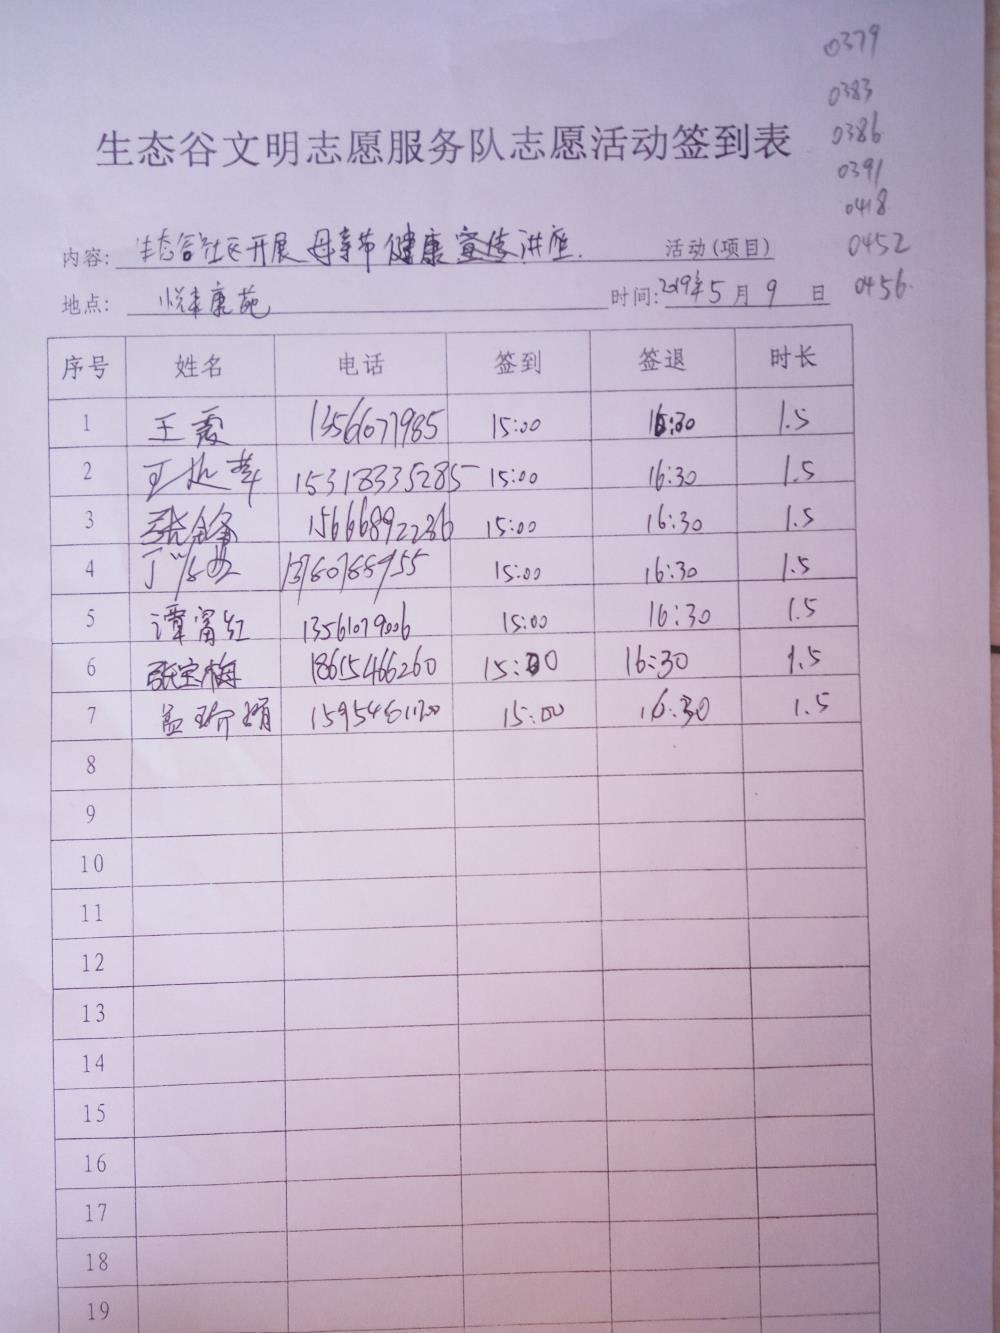 0379
0383
0386
0391
0418
0452
0456
生态谷文明志愿服务队志愿活动签到表
内容: 生态谷社区开展母亲节健康宣传讲座. 活动(项目)
地点: 悦来康苑 时间: 2019年5月9日
序号 姓名 电话 签到 签退 时长
1 王霞 13561077985 15:00 16:30 1.5
2 王 15318335285 15:00 16:30 1.5
3 张 15666892236 15:00 16:30 1.5
4 丁 15:00 16:30 1.5
5 谭富红 13561079006 15:00 16:30 1.5
6 张宝梅 18615466260 15:00 16:30 1.5
7 孟 娟 15:00 16:30 1.5
8
9
10
11
12
13
14
15
16
17
18
19